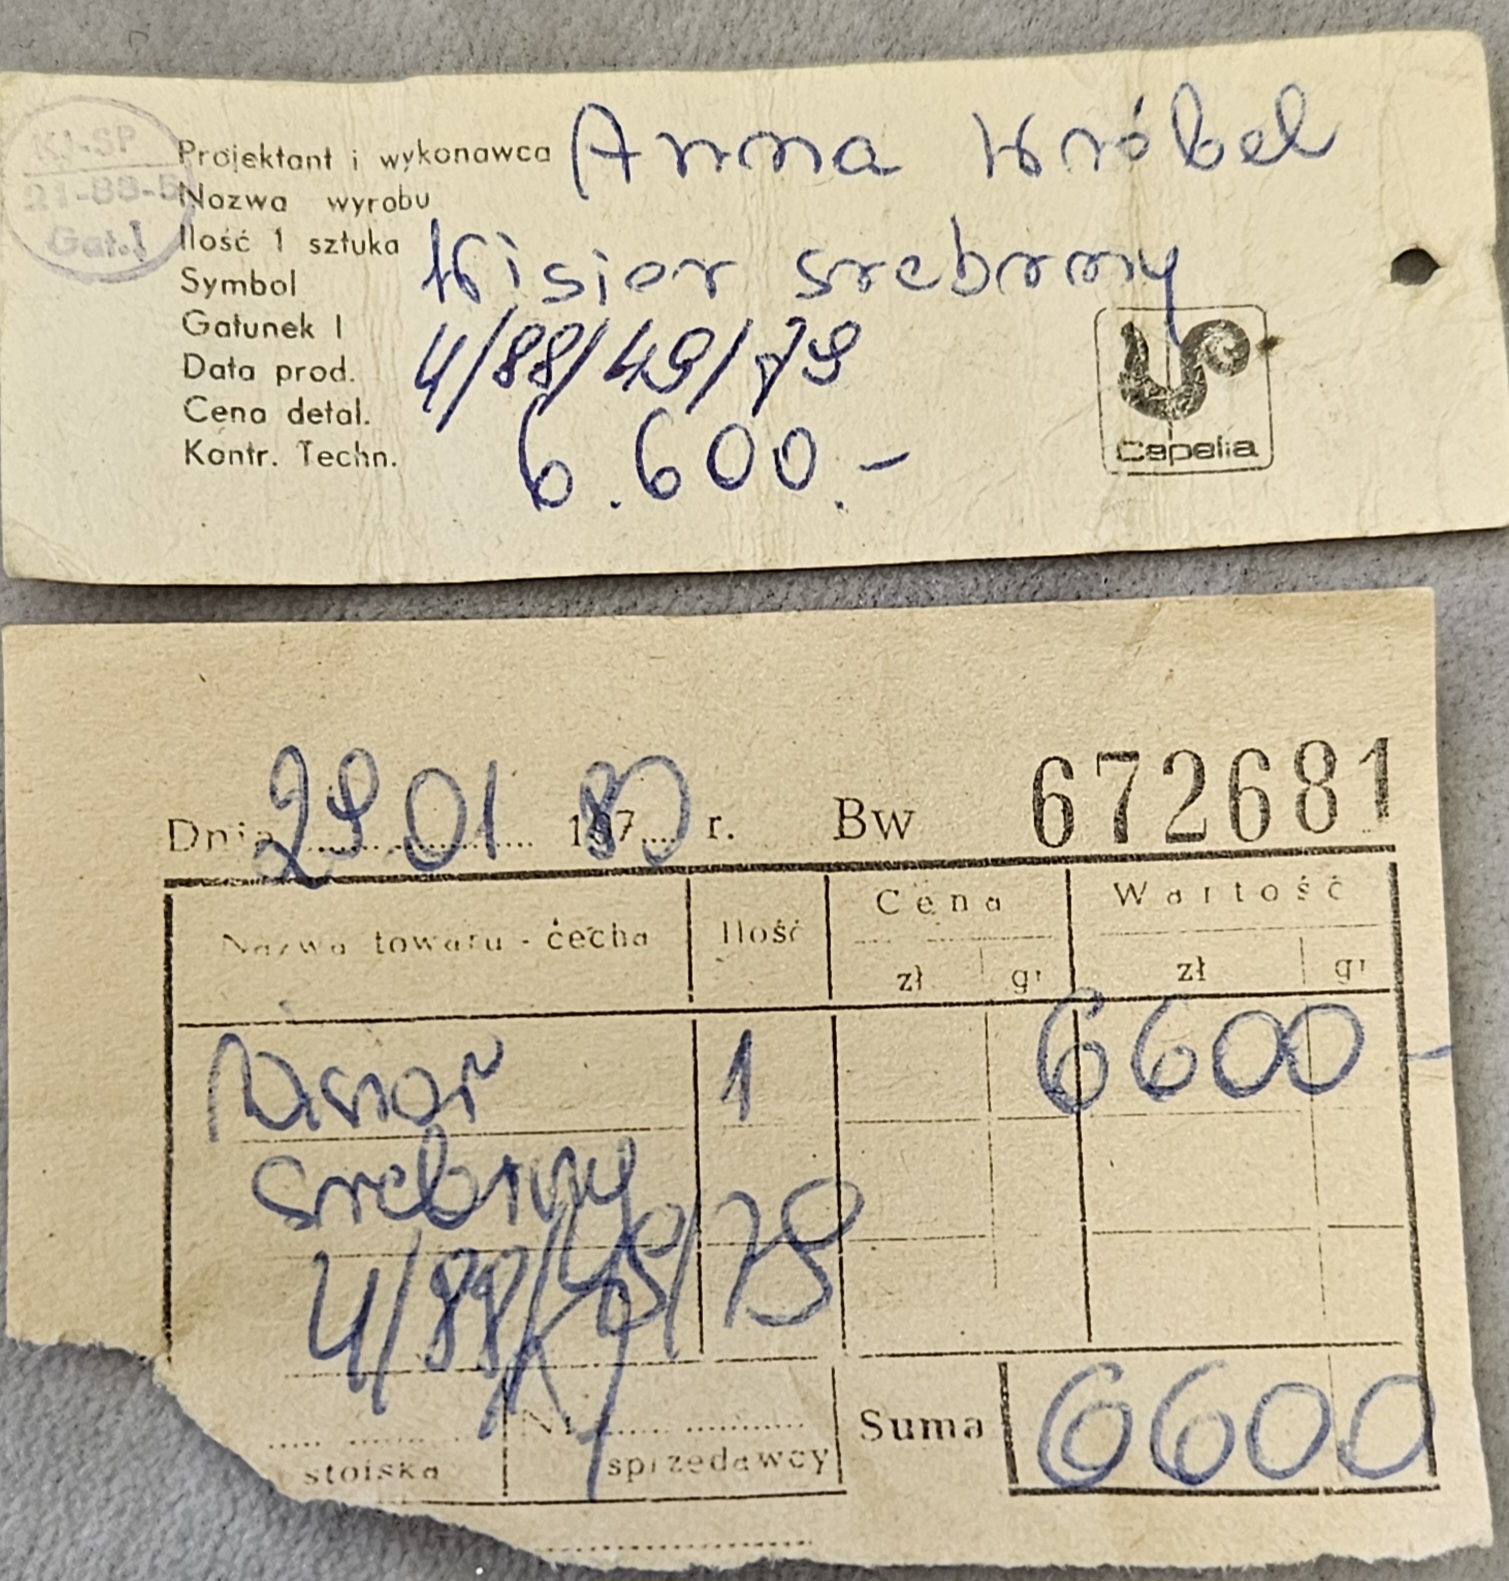 KJ-SP
21-88-5
Gat. I
Projektant i wykonawca Anna Wróbel
Nazwa wyrobu
Ilość 1 sztuka Wisior srebrny
Symbol
Gatunek I
Data prod. 4/88/49/79
Cena detal.
Kontr. Techn. 6.600.-
Cepelia
Dnia 29 01 1980 r. Bw 672681
Nazwa towaru - cecha Ilość Cena Wartość
zł gr zł gr
Wisior 1 6600 -
srebrny
4/88/49/79
stoiska Nr sprzedawcy Suma 6600